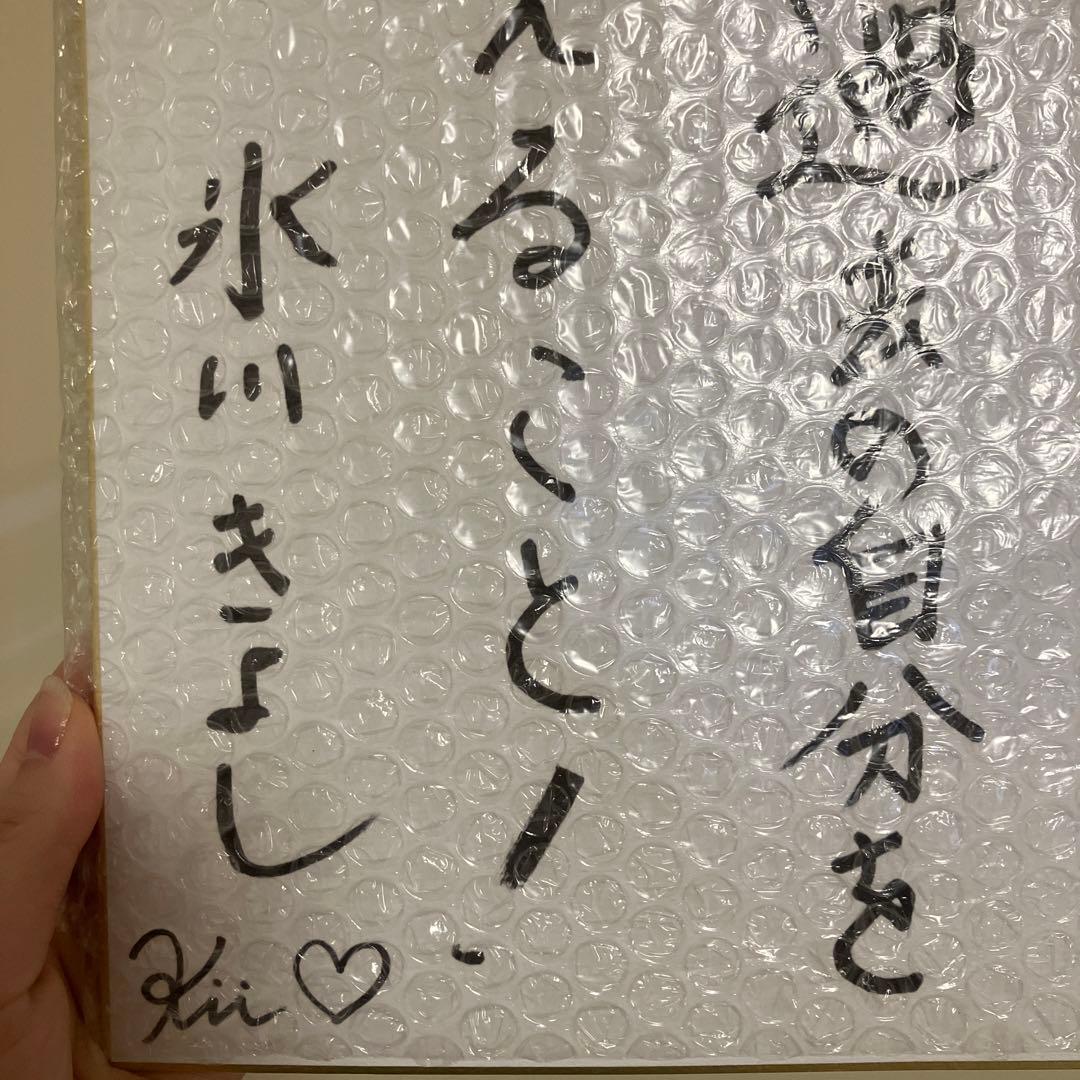 過去の自分を
えること!
氷川きよし
Kii♡